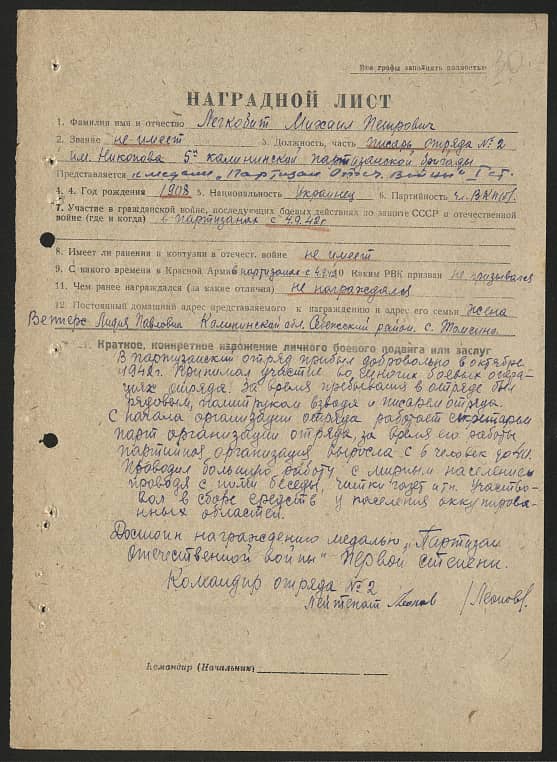 Все графы заполнять полностью
НАГРАДНОЙ ЛИСТ
1. Фамилия имя и отчество Легковит Михаил Петрович
2. Звание не имеет 3. Должность, часть писарь отряда №2
им. Никонова 5й калининской партизанской бригады
Представляется к медали „Партизан Отеч. Войны" I ст.
4. 4. Год рождения 1908 5. Национальность Украинец 6. Партийность чл. ВКП(б)
7. Участие в гражданской войне, последующих боевых действиях по защите СССР и отечественной
войне (где и когда) в партизанах с 4.9.42г
8. Имеет ли ранения и контузии в отечест. войне не имеет
9. С какого времени в Красной Армии партизанах с 10 Каким РВК призван не призывался
11. Чем ранее награждался (за какие отличия) не награждался
12. Постоянный домашний адрес представляемого к награждению и адрес его семьи жена
Лидия Павловна Калининской обл. Себежский район. с. Томсино.
Краткое, конкретное изложение личного боевого подвига или заслуг
В партизанский отряд прибыл добровольно в октябре
1942г. Принимал участие во многих боевых опера-
циях отряда. За время пребывания в отряде был
рядовым, политруком взвода и писарем отряда.
С начала организации отряда работает секретарем
парт организации отряда, за время его работы
партийная организация выросла с 6 человек до
Проводил большую работу с мирным населением
проводя с ними беседы, читки газет и тн. Участво-
вал в сборе средств у населения оккупирова-
нных областей.
Достоин награждению медалью „Партизан
Отечественной войны" первой степени.
Командир отряда №2
Лейтенант Леонов /Леонов/.
Командир (Начальник)